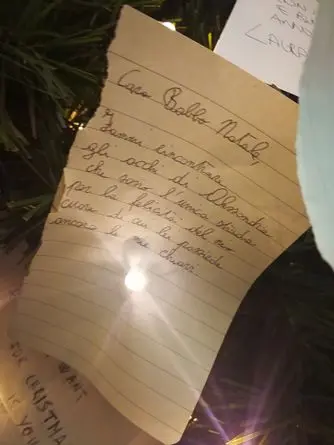 ANNO
LAURA
Caro Babbo Natale,
Fammi rincontrare
gli occhi di Alessandra
che sono l'unica strada
per la felicità del mio
cuore di cui lei possiede
ancora le mie chiavi.
FOR CHRISTMA
IS YOU